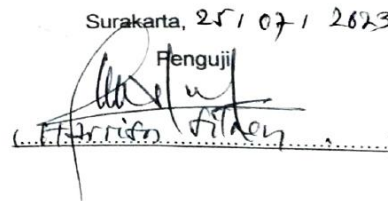 Surakarta, 25 / 07 / 2023
Penguji
(..Harrison..........)